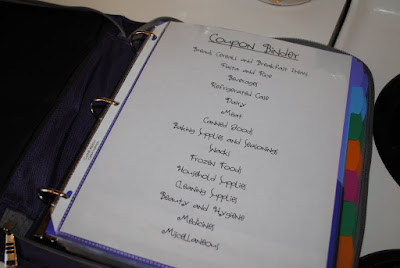 Coupon Binder
Bread, Cereals and Breakfast Items
Pasta and Rice
Beverages
Refrigerated Case
Dairy
Meat
Canned Goods
Baking Supplies and Seasonings
Snacks
Frozen Foods
Household Supplies
Cleaning Supplies
Beauty and Hygiene
Medicines
Miscellaneous